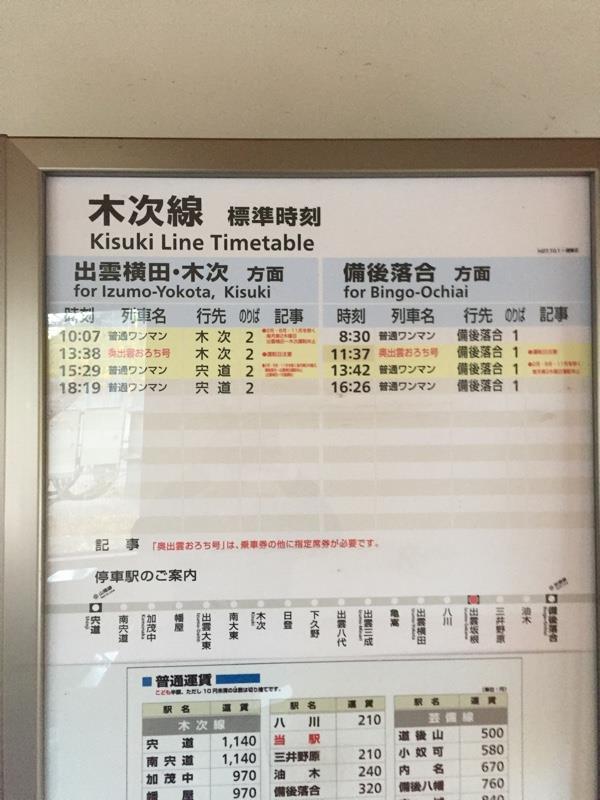 木次線 標準時刻
Kisuki Line Timetable
出雲横田・木次 方面
for Izumo-Yokota, Kisuki
時刻 列車名 行先 のりば 記事
10:07 普通ワンマン 木次 2
13:38 奥出雲おろち号 木次 2 ●運転日注意
15:29 普通ワンマン 宍道 2
18:19 普通ワンマン 宍道 2
備後落合 方面
for Bingo-Ochiai
時刻 列車名 行先 のりば 記事
8:30 普通ワンマン 備後落合 1
11:37 奥出雲おろち号 備後落合 1 ●運転日注意
13:42 普通ワンマン 備後落合 1
16:26 普通ワンマン 備後落合 1
記事 「奥出雲おろち号」は、乗車券の他に指定席券が必要です。
停車駅のご案内
宍道
南宍道
加茂中
幡屋
出雲大東
南大東
木次
日登
下久野
出雲八代
出雲三成
亀嵩
出雲横田
八川
出雲坂根
三井野原
油木
備後落合
普通運賃
こども半額、ただし10円未満のは数は切り捨てです。
(単位:円)
駅名 運賃
木次線
宍道 1,140
南宍道 1,140
加茂中 970
幡屋 970
駅名 運賃
八川 210
当駅
三井野原 210
油木 240
備後落合 320
駅名 運賃
芸備線
道後山 500
小奴可 580
内名 670
備後八幡 760